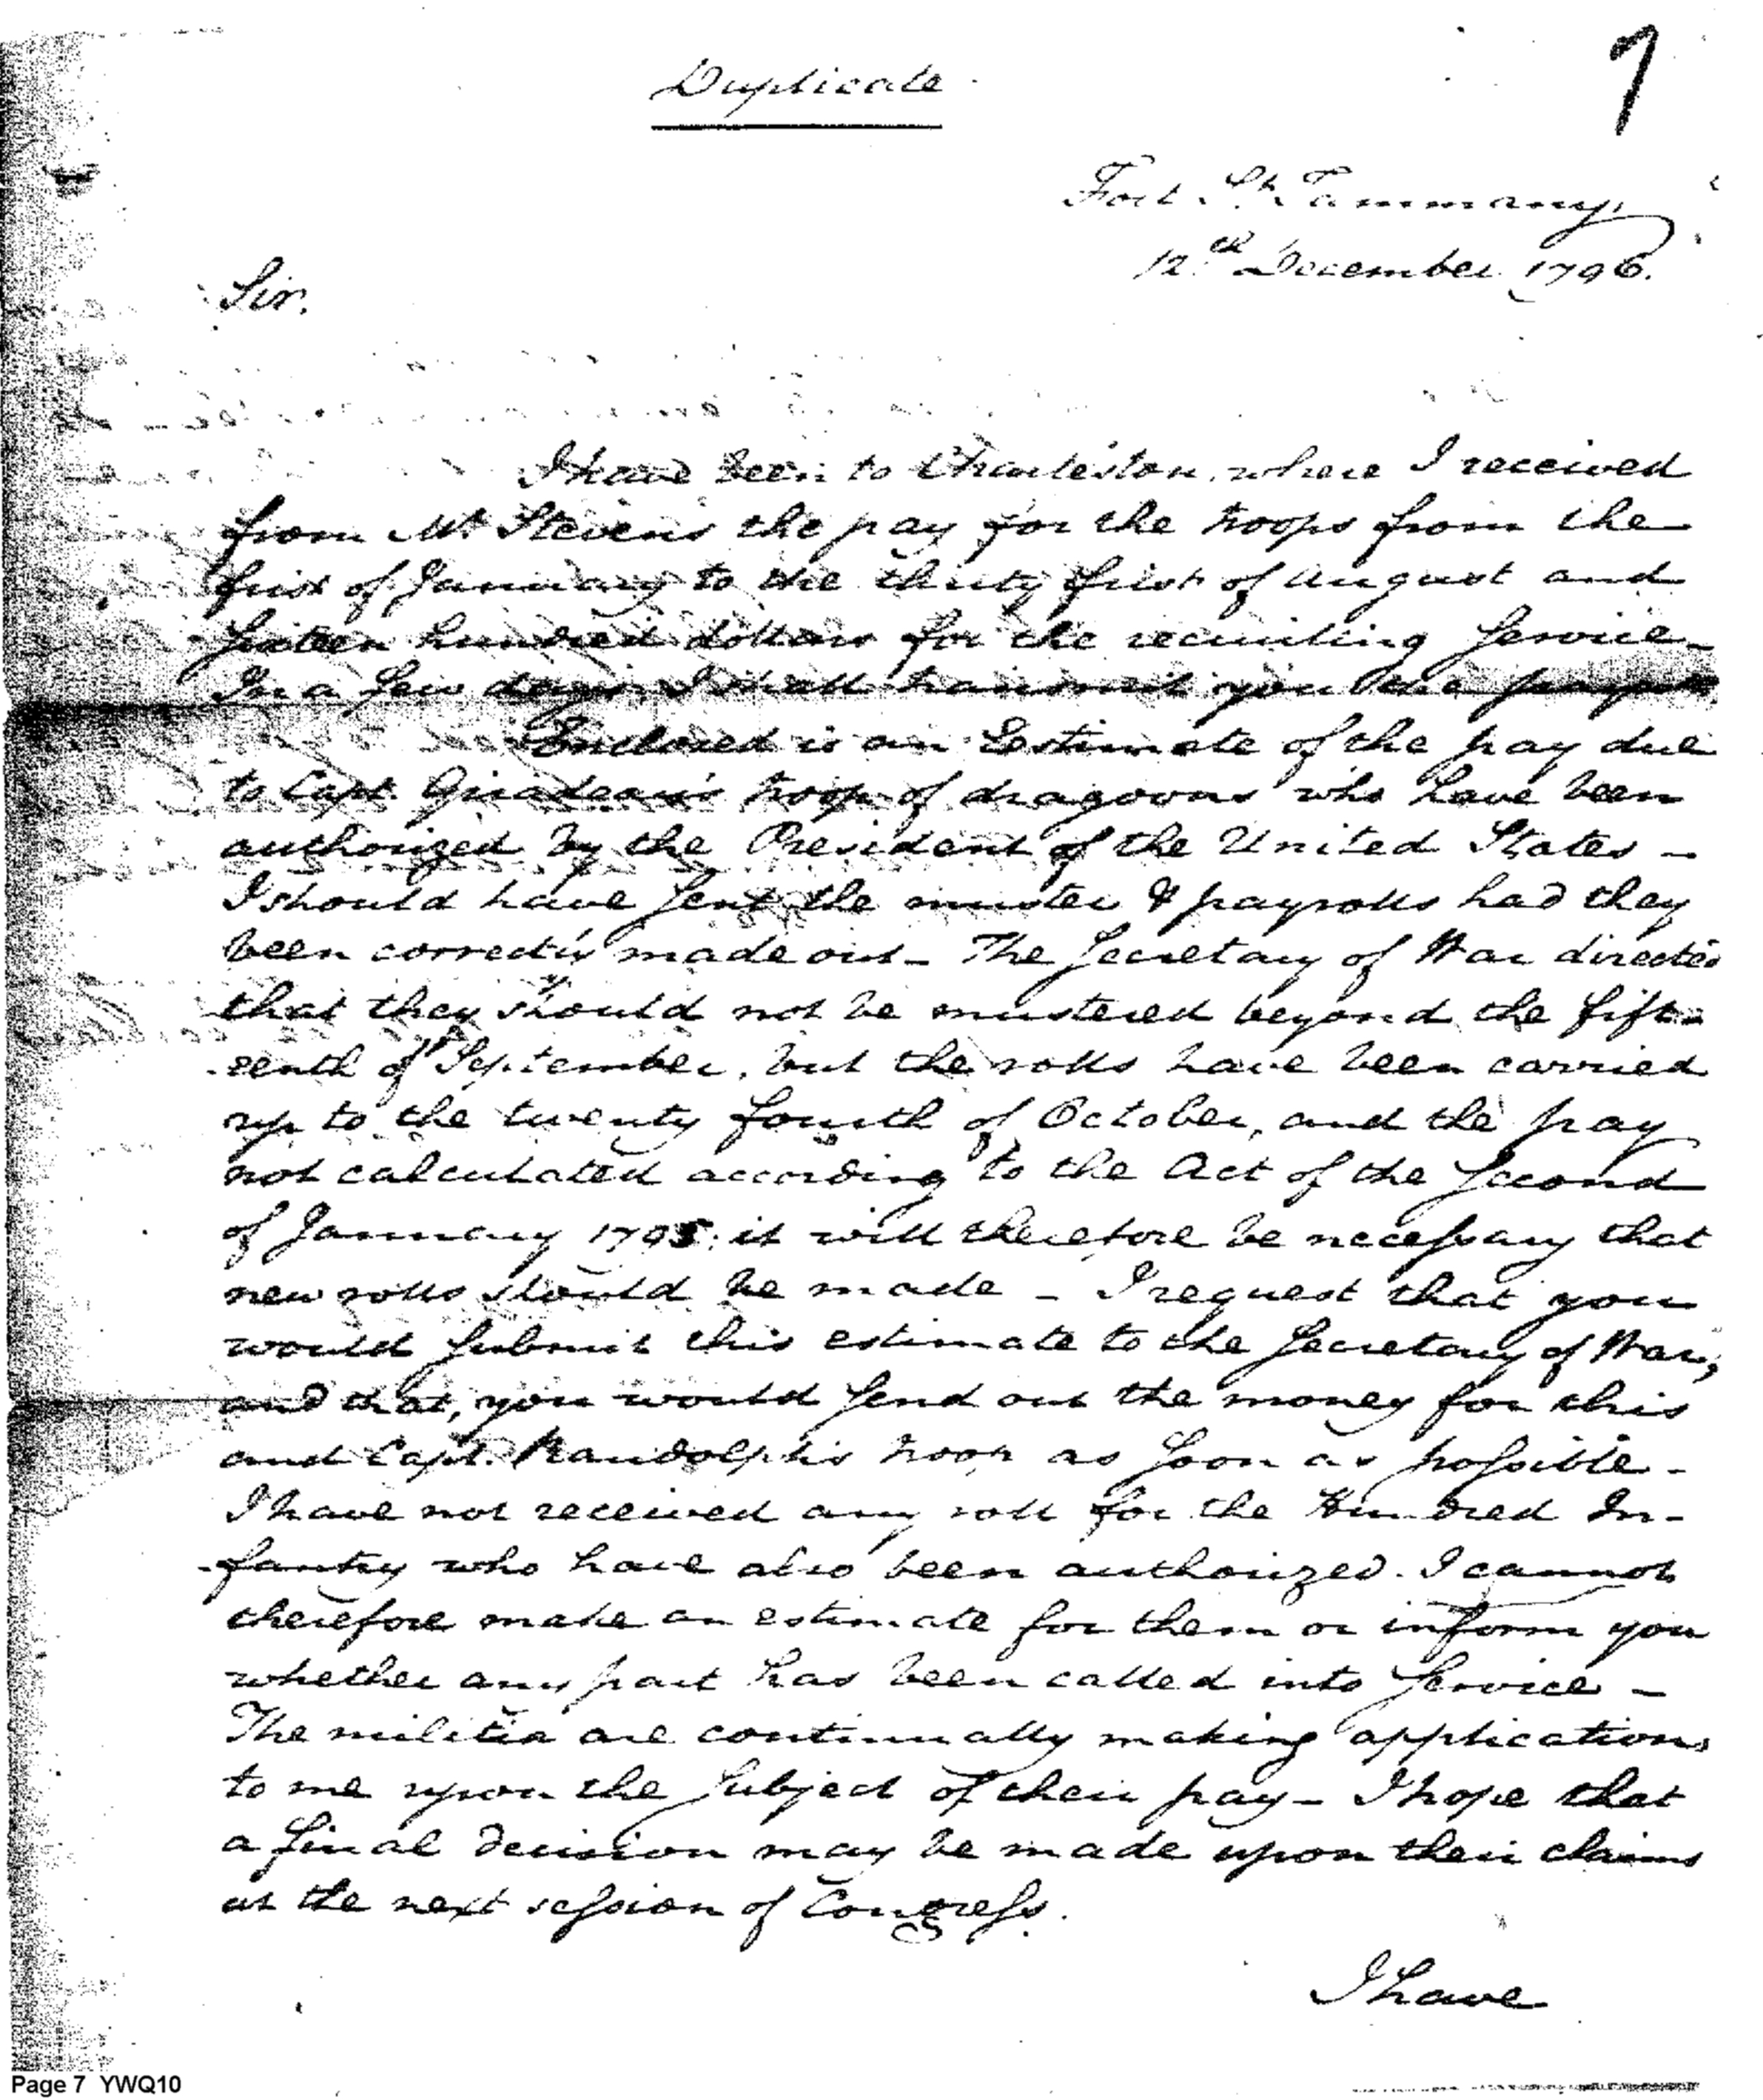 7
Duplicate
Fort St. Tammany,
12th December 1796.
Sir.
I have been to Charleston, where I received
from Mr Stevens the pay for the troops from the
first of January to the thirty first of August and
Sixteen hundred dollars for the recruiting Service_
In a few days I shall transmit you the
Enclosed is an Estimate of the pay due
to Capt. troop of dragoons who have been
authorized by the President of the United States _
I should have sent the muster & payrolls had they
been correctly made out_ The Secretary of War directed
that they should not be mustered beyond the fift-
-eenth of September, but the rolls have been carried
up to the twenty fourth of October, and the pay
not calculated according to the Act of the Second
of January 1795; it will therefore be necessary that
new rolls should be made _ I request that you
would submit this estimate to the Secretary of War,
and that, you would send out the money for this
and Capt. Randolph's troop as soon as possible _
I have not received any roll for the Hundred In-
-fantry who have also been authorized. I cannot
therefore make an estimate for them or inform you
whether any part has been called into Service _
The militia are continually making applications
to me upon the Subject of their pay _ I hope that
a final decision may be made upon their claims
at the next session of Congress.
I have
Page 7 YWQ10